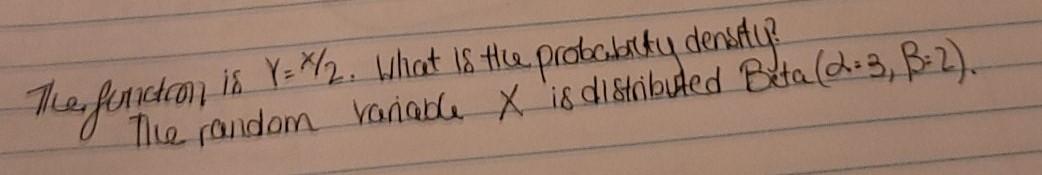 The function is Y = X/2. What is the probability density?
The random variable X is distributed Beta(α=3, β=2).